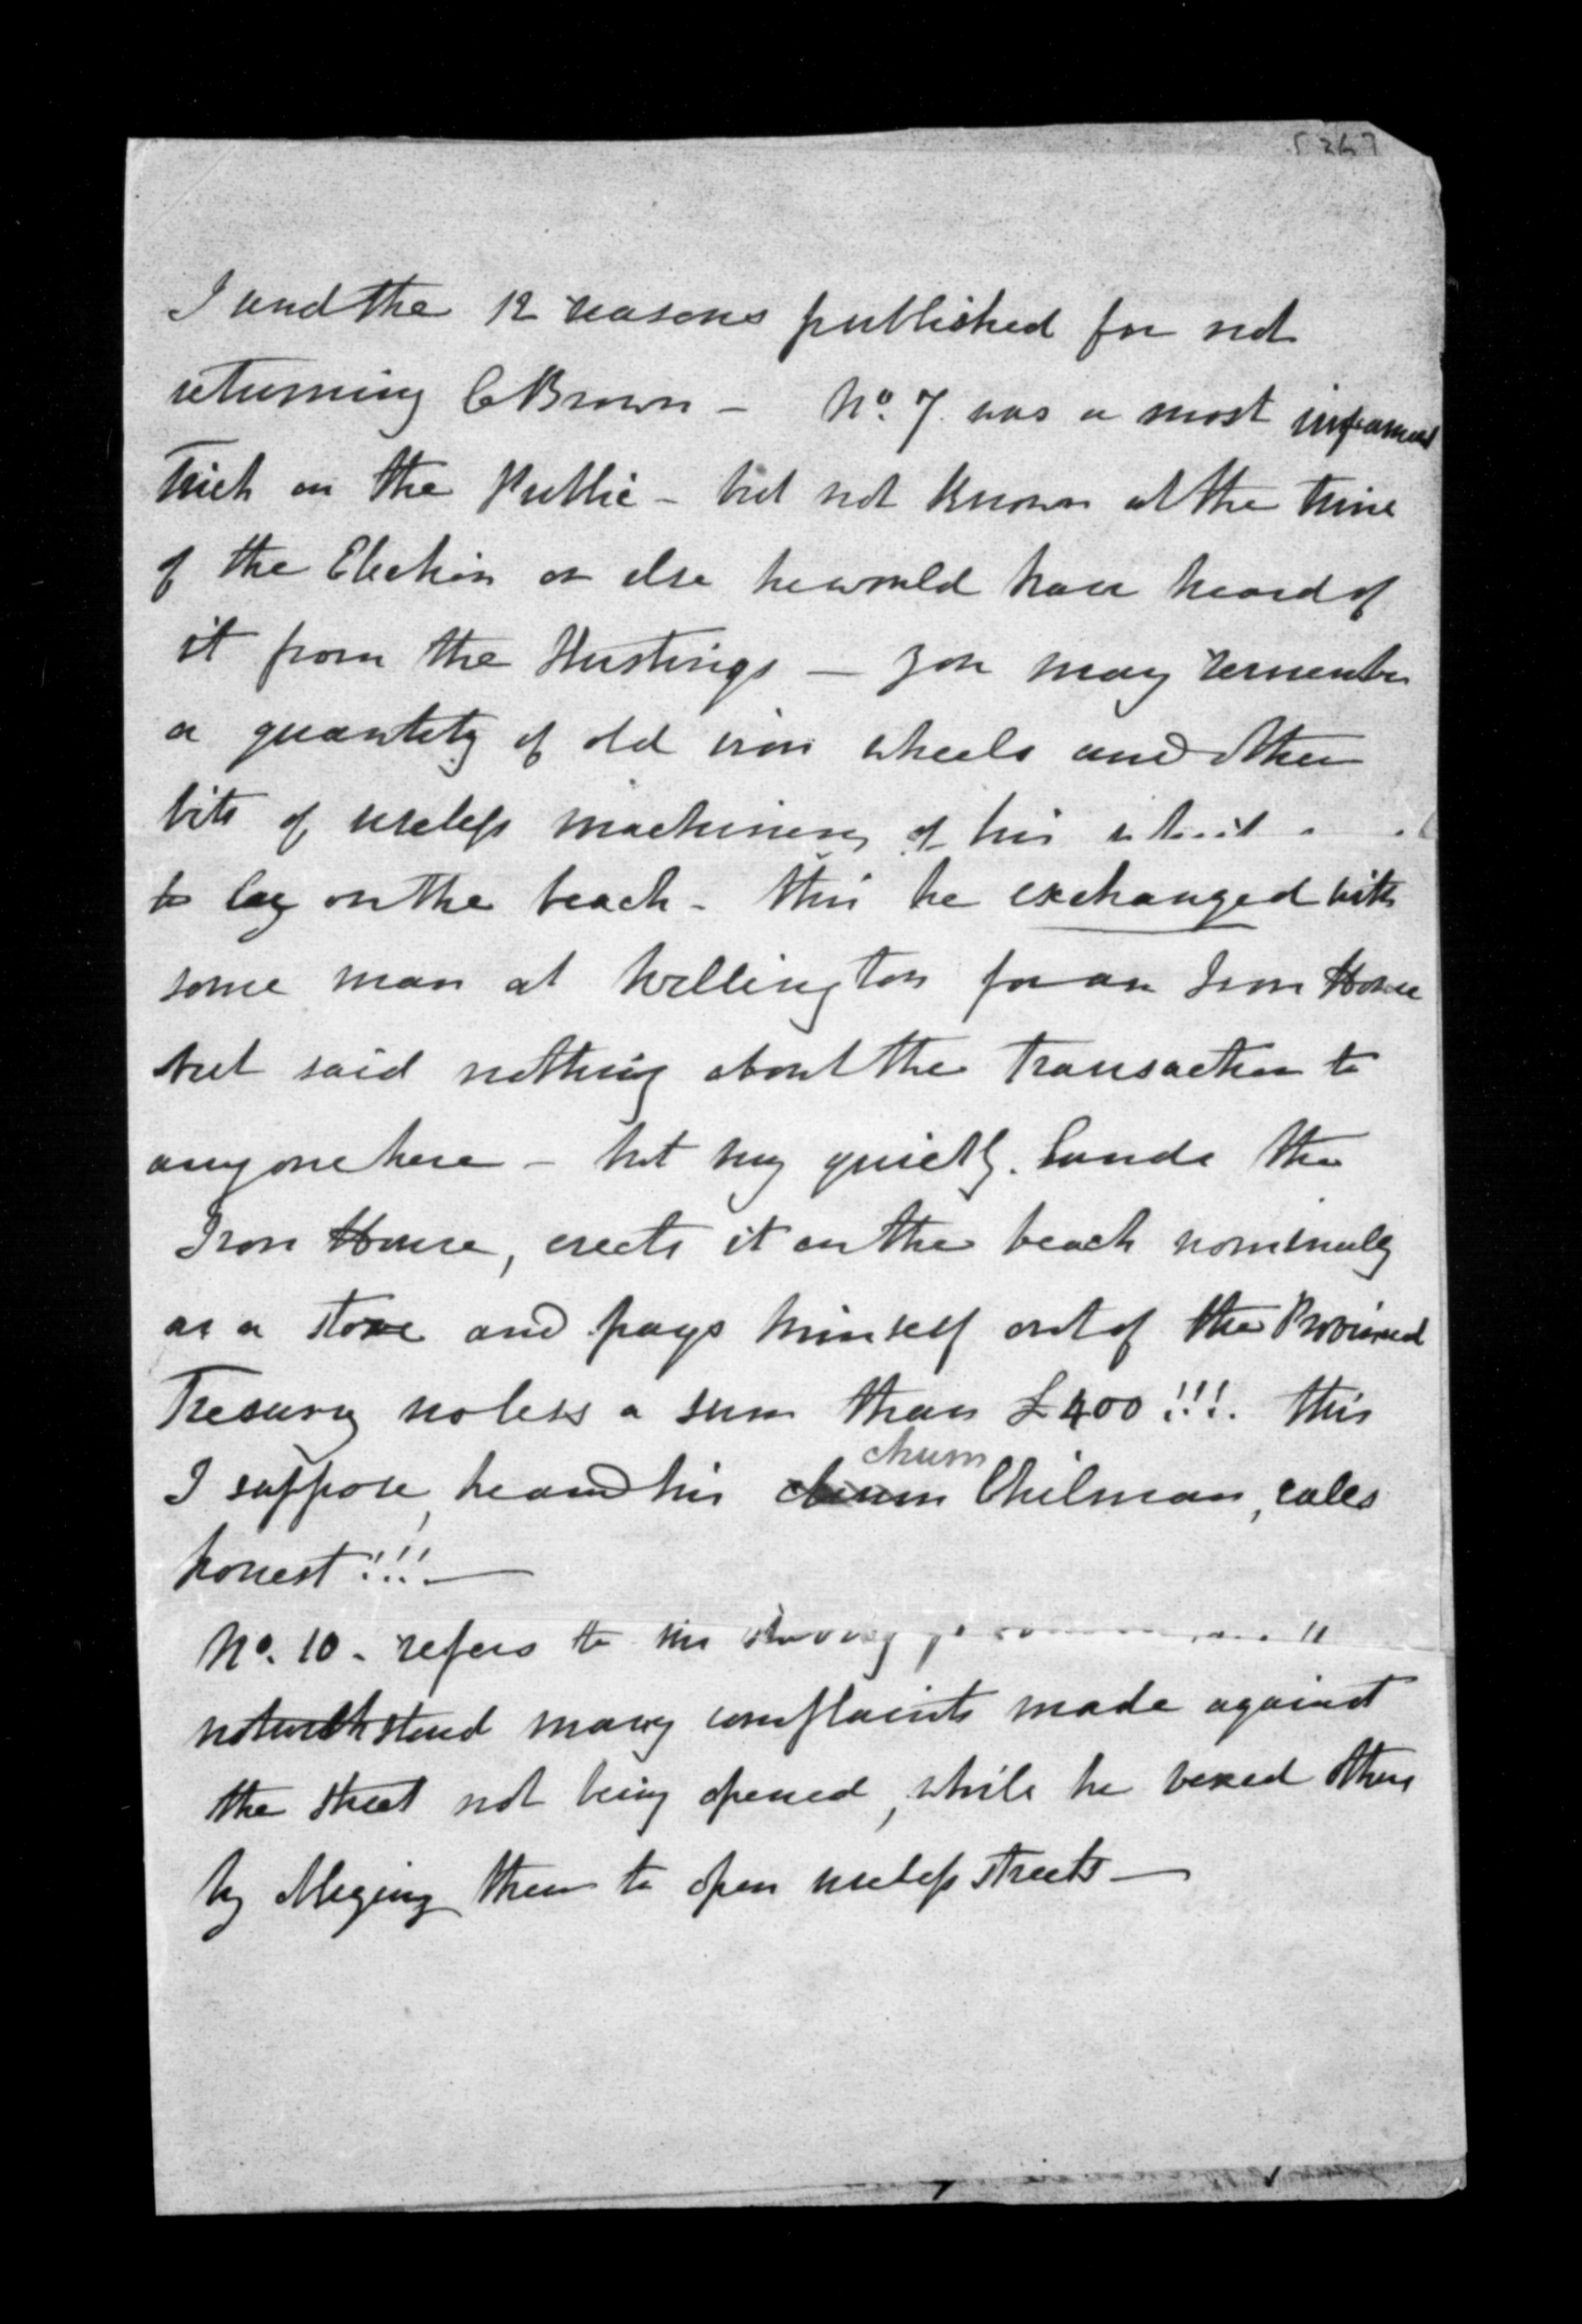 5267
I and the 12 reasons published for not
returning C Brown - No. 7. was a most infamous
Trick on the Public - but not known at the time
of the Election or else he would have heard of
it from the Hustings - you may remember
a quantity of old iron wheels and other
bits of useless machinery of his
to lay on the beach - this he exchanged with
some man at Wellington for an Iron House
but said nothing about the transaction to
anyone here - but very quietly lands the
Iron House, erects it on the beach nominally
as a store and pays himself out of the Provincial
Tresury no less a sum than £400!!!. this
I suppose, he and his chum Chilman, calls
honest!!! -
No. 10 - refers to his
notwithstand many complaints made against
the street not being opened, while he vexed others
by obliging them to open useless streets -